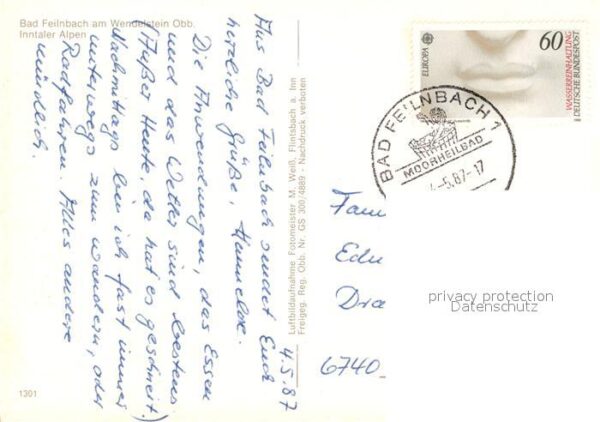 Bad Feilnbach am Wendelstein Obb.
Inntaler Alpen
4.5.87
Aus Bad Feilnbach sendet Euch
herzliche Grüße, Hannelore.
Die Anwendungen, das Essen
und das Wetter sind bestens
(Außer Heute, da hat es geschneit.)
Nachmittags bin ich fast immer
unterwegs zum wandern, oder
Radfahren. Alles andere
mündlich.
1301
Luftbildaufnahme Fotomeister M. Weiß, Flintsbach a. Inn
Freigeg. Reg. Obb. Nr. GS 300/4889 - Nachdruck verboten
EUROPA
60
WASSERREINHALTUNG
DEUTSCHE BUNDESPOST
BAD FEILNBACH 1
MOORHEILBAD
-5.87-17
Fam
Edu
Dra
6740
privacy protection
Datenschutz